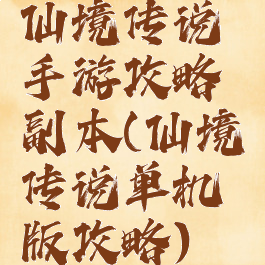 仙境传说
手游攻略
副本(仙境
传说单机
版攻略)